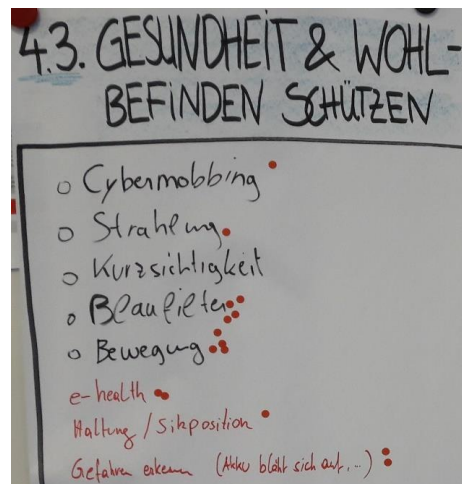 4.3. GESUNDHEIT & WOHL-
BEFINDEN SCHÜTZEN
o Cybermobbing
o Strahlung
o Kurzsichtigkeit
o Blaufilter
o Bewegung
e-health
Haltung / Sitzposition
Gefahren erkennen (Akku bläht sich auf, ...)